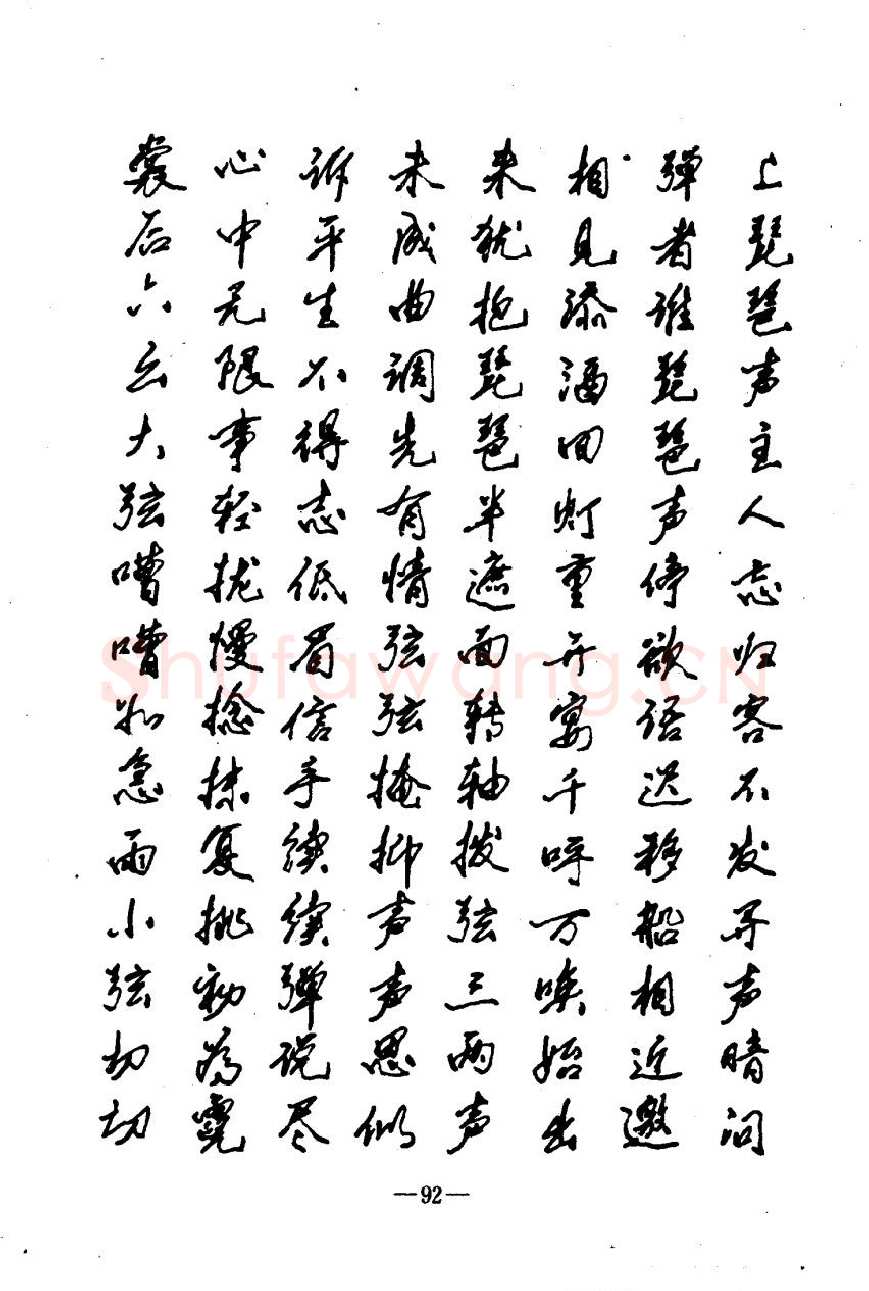 上琵琶声主人忘归客不发寻声暗问
弹者谁琵琶声停欲语迟移船相近邀
相见添酒回灯重开宴千呼万唤始出
来犹抱琵琶半遮面转轴拨弦三两声
未成曲调先有情弦弦掩抑声声思似
诉平生不得志低眉信手续续弹说尽
心中无限事轻拢慢捻抹复挑初为霓
裳后六幺大弦嘈嘈如急雨小弦切切
—92—
Shufawang.CN